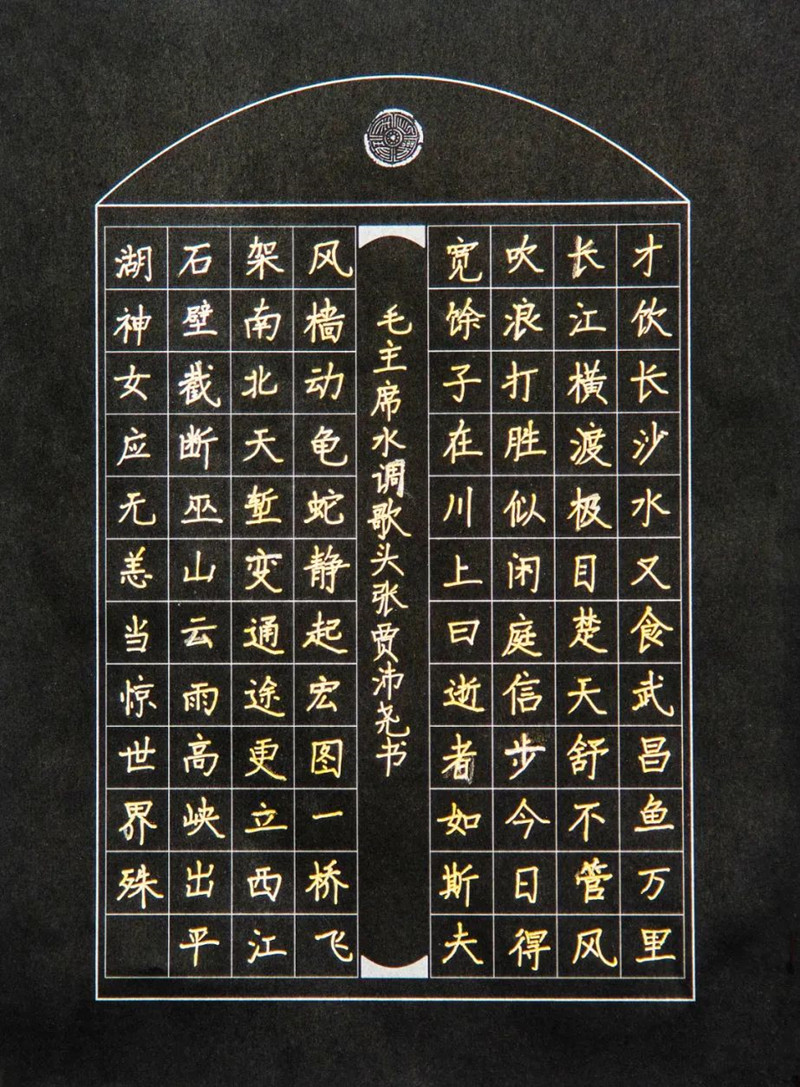 才饮长沙水又食武昌鱼万里
长江横渡极目楚天舒不管风
吹浪打胜似闲庭信步今日得
宽馀子在川上曰逝者如斯夫
毛主席水调歌头张贾沛尧书
风樯动龟蛇静起宏图一桥飞
架南北天堑变通途更立西江
石壁截断巫山云雨高峡出平
湖神女应无恙当惊世界殊